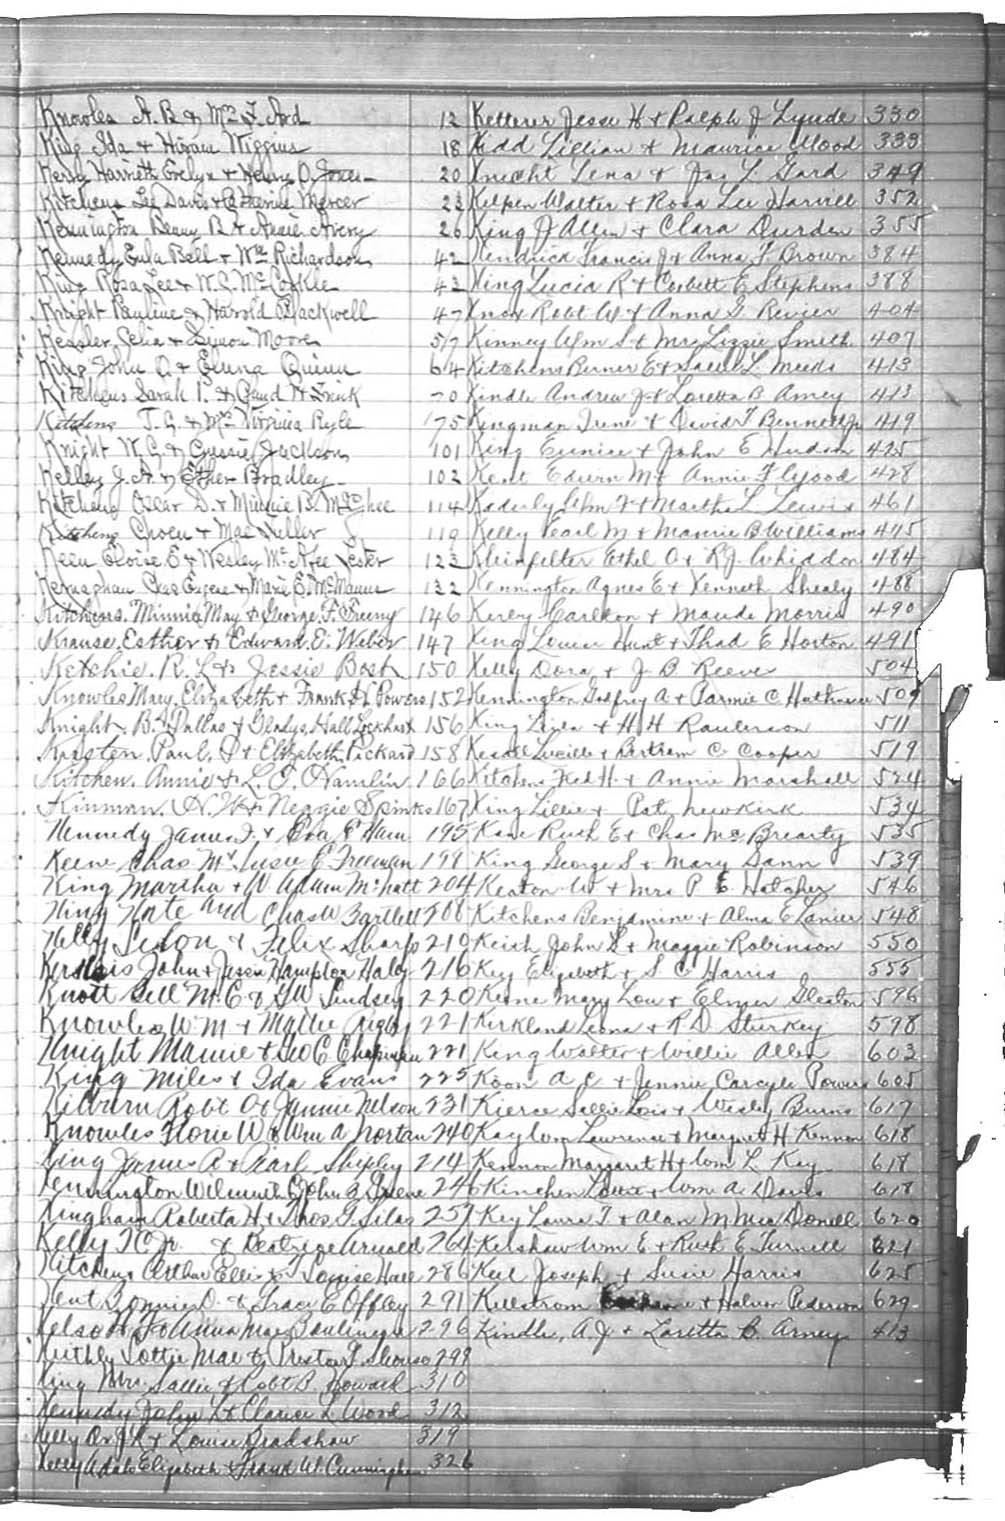 Knowles A. B & Mrs F. Ard 12
King Ida & Hiram Wiggins 18
Kerry Harriett Evelyn & Henry O. Jones 20
Kitchens Lee Davis & Catherine Mercer 23
Kennington Benny B & Annie Avery 26
Kennedy Eula Bell & Wm Richardson 42
King Rosa Lee & W. C. McCorkle 43
Knight Pauline & Harold Blackwell 47
Kessler, Celia & Simon Moore 57
King John O & Elena Quinn 64
Kitchens Sarah I. & Claud H Frink 70
Kitchens J. G. & Mrs Virginia Ryle 175
Knight W. G. & Gussie Jackson 101
Kelley J. A. & Ether Bradley 102
Kitchens Oscar D. & Minnie B. McGhee 114
Kitchens Choen & Mae Fuller 119
Keen Eloise E & Wesley McAfee Lester 123
Kernaghan Chas Eugene & Marie E. McManus 132
Kitchens. Minnie May & George. F. Freeny 146
Krause. Esther & Edward. E. Weber 147
Ketchie. R. L & Jessie Bost 150
Knowles Mary. Elizabeth & Frank H Powers 152
Knight. B. Dallas & Gladys. Hall Lockhart 156
Karsten. Paul. & Elizabeth. Pickard 158
Kitchen. Annie & L. T. Hamlin 166
Kinman. N. W & Neggie Spinks 167
Kennedy James T. & Eva E Ham 195
Keene Chas M & Susie E Freeman 199
King Martha & W. Adam McNatt 204
King Kate and Chas W Bartlett 208
Kelly & Felix Sharp 219
John & Jessie Hampton Haley 216
Knott Bell M. C & G W Lindsey 220
Knowles W M & Mattie Rigby 221
Knight Mamie & Geo C Chapman 221
King Miles & Ida Evans 225
Kilburn Robt O & Jannie Nelson 231
Knowles Florie W & Wm A Nortan 240
King James R & Pearl Shipley 214
Kennington Wilmuth & John B Greene 246
Kingham Roberta H & Thos. G Silas 257
Kelly T C Jr. & Beatrice Arnold 264
Kitchens Arthur Ellis & T Louise Hall 286
Kent Bonnie D. & Tracy E Offley 291
Kelso & Anna Mae Boulineau 296
Keithley Lottie Mae & Preston G. Shouse 298
King Mrs. Sallie & Robt B. Howard 310
Kennedy John L & Clarice L Wood 312
Kelly Or J R & Louise Bradshaw 319
Kelly Adale Elizabeth & Frank W. Cunningham 326
Ketterer Jesse H & Ralph J Lynde 330
Kidd Lillian & Maurice Wood 333
Knecht Lena & Jas L. Gard 349
Kilpen Walter & Rosa Lee Harvill 352
King J Allen & Clara Durden 355
Kendrick Francis J & Anna F Brown 384
King Lucia R & Corbett E Stephens 388
Knox Robt W & Anna G. Revier 404
Kinney Wm S & Mrs Lizzie Smith 407
Kitchens Berner E & Sallie L. Meeks 413
Kindle Andrew J & Loretta B Arney 413
Kingman Irene & David T Bennett Jr 419
King Eunice & John E Hudson 425
Kent Edwin M & Annie F Wood 428
Kaderly Wm F & Martha L Lewis 461
Kelly Pearl M & Mannie B Williams 475
Kleinfelter Ethel O & R J. Whiddon 484
Kennington Agnes E & Kenneth Shealy 488
Kerley Carlton & Maude Morris 490
King Louise Hunt & Thad E Horton 491
Kelly Dora & J B Reeves 504
Kennington Godfrey A & Parmie C Hathaway 509
King Lula & H H Raulerson 511
Kesell Lucille & Bertram C Cooper 519
Kitchens Fred H & Annie Marshall 524
King Lillie & Pat Newkirk 534
Kane Ruth E & Chas McBrearty 535
King George S & Mary Dann 539
Keaton W & Mrs P E Hatcher 546
Kitchens Benjamine & Alma E Lanier 548
Keish John L & Maggie Robinson 550
Key Elizabeth & S C Harris 555
Keene Mary Lou & Elmer Gleaton 596
Kirkland Leona & R D Sturkey 598
King Walter & Willie Allen 603
Koon A C & Jennie Carcyle Powers 605
Kierce Sallie Lois & Wesley Burns 617
Kay Wm Lawrence & Margret H Kennon 618
Kennon Margaret H & Wm L Kay 618
Kinchen Louise & Wm A Davis 618
Key Laura T & Alan M MacDonell 620
Kershaw Wm E & Ruth E Turnell 621
Keel Joseph & Susie Harris 625
Kellstrom & Halvor Pederson 629
Kindle, A. J & Loretta B. Arney 413